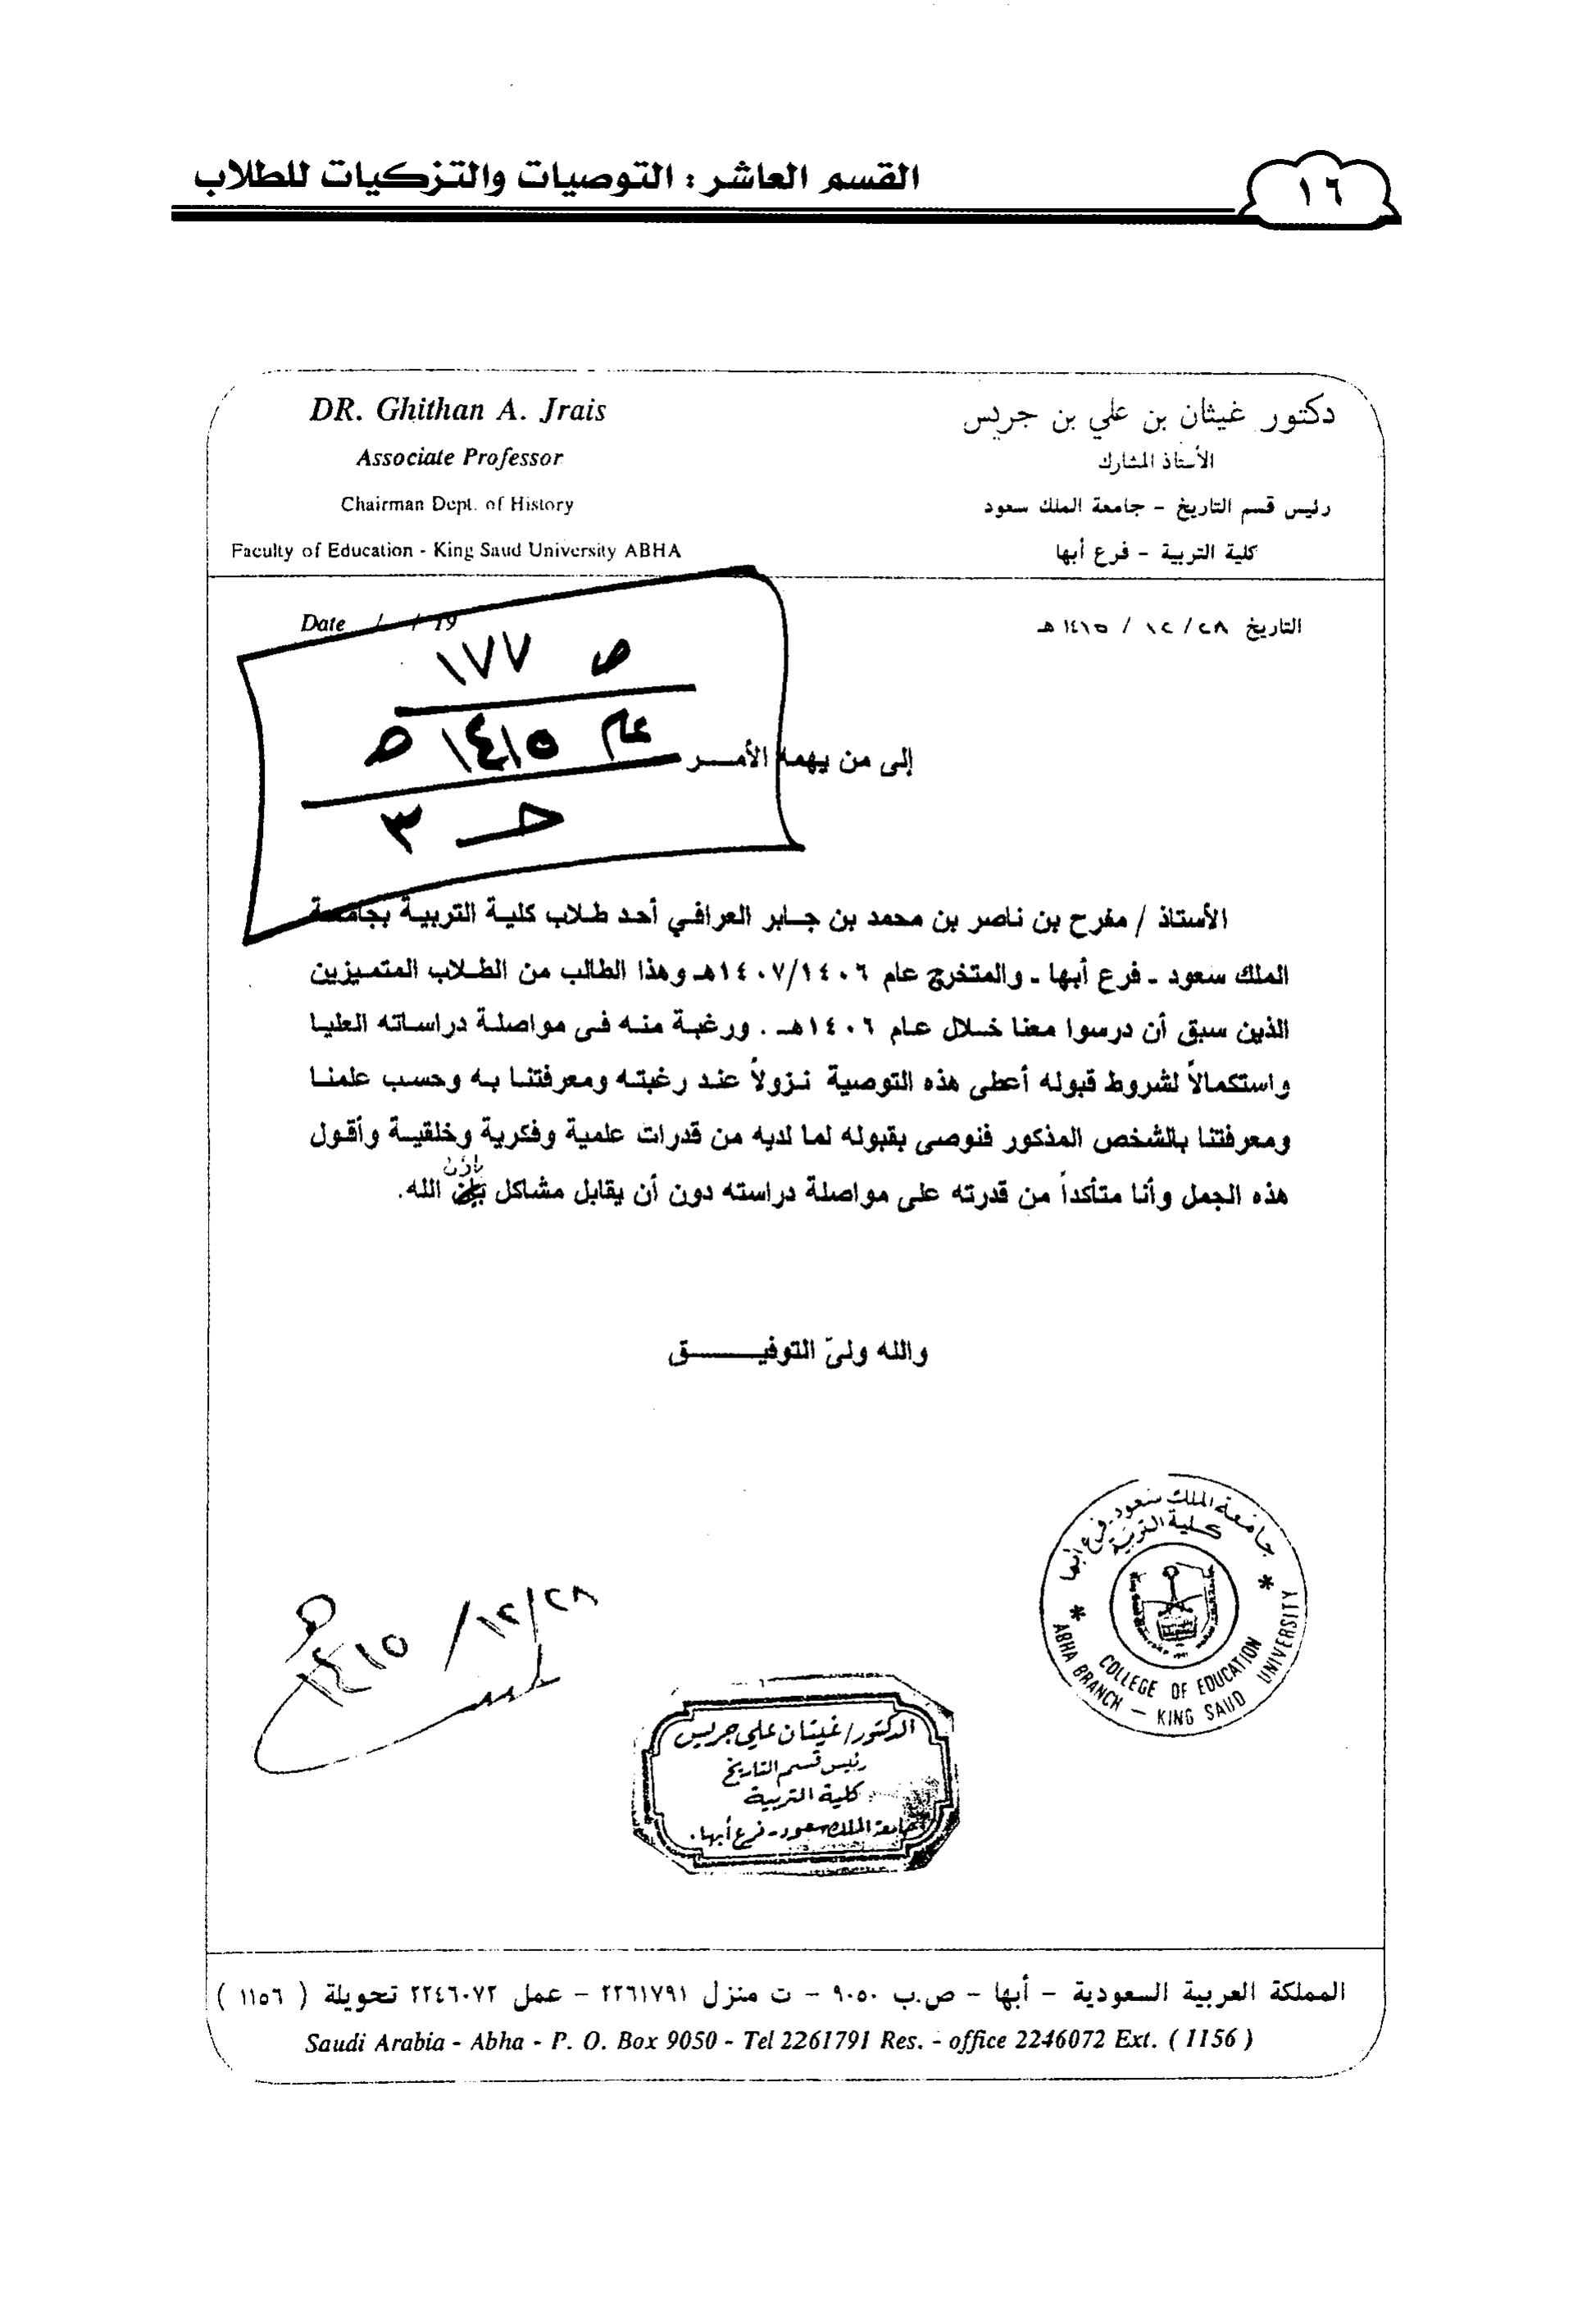 ١٦
القسم العاشر : التوصيات والتزكيات للطلاب
DR. Ghithan A. Jrais
Associate Professor
Chairman Dept. of History
Faculty of Education - King Saud University ABHA
دكتور غيثان بن علي بن جريس
الأستاذ المشارك
رئيس قسم التاريخ - جامعة الملك سعود
كلية التربية - فرع أبها
التاريخ ٢٨ / ١٢ / ١٤١٥ هـ
Date / / 19
ص ١٧٧
عام ١٤١٥ هـ
حـ ٣
إلى من يهمه الأمـــر
الأستاذ / مفرح بن ناصر بن محمد بن جـابر العرافـي أحـد طـلاب كليـة التربيـة بجامعـة
الملك سعود ـ فرع أبهـا ـ والمتخرج عام ١٤٠٧/١٤٠٦هـ وهذا الطالب من الطـلاب المتمـيزين
الذين سبق أن درسوا معنا خـلال عـام ١٤٠٦هـ . ورغبـة منـه فـى مواصلـة دراسـاته العليـا
واستكمالاً لشروط قبوله أعطى هذه التوصية نـزولاً عنـد رغبتـه ومعرفتنـا بـه وحسـب علمنـا
ومعرفتنا بالشخص المذكور فنوصى بقبوله لما لديه من قدرات علمية وفكرية وخلقيـة وأقـول
هذه الجمل وأنا متأكداً من قدرته على مواصلة دراسته دون أن يقابل مشاكل بإذن الله.
والله ولىّ التوفيـــــق
جامعة الملك سعود - فرع أبها
كلية التربية
COLLEGE OF EDUCATION
ABHA BRANCH – KING SAUD UNIVERSITY
٢٨/١٢/١٤١٥هـ
الدكتور/ غيثان علي جريس
رئيس قسم التاريخ
كلية التربية
جامعة الملك سعود - فرع أبها.
المملكة العربية السعودية - أبها - ص.ب ٩٠٥٠ - ت منزل ٢٢٦١٧٩١ - عمل ٢٢٤٦٠٧٢ تحويلة ( ١١٥٦ )
Saudi Arabia - Abha - P. O. Box 9050 - Tel 2261791 Res. - office 2246072 Ext. ( 1156 )